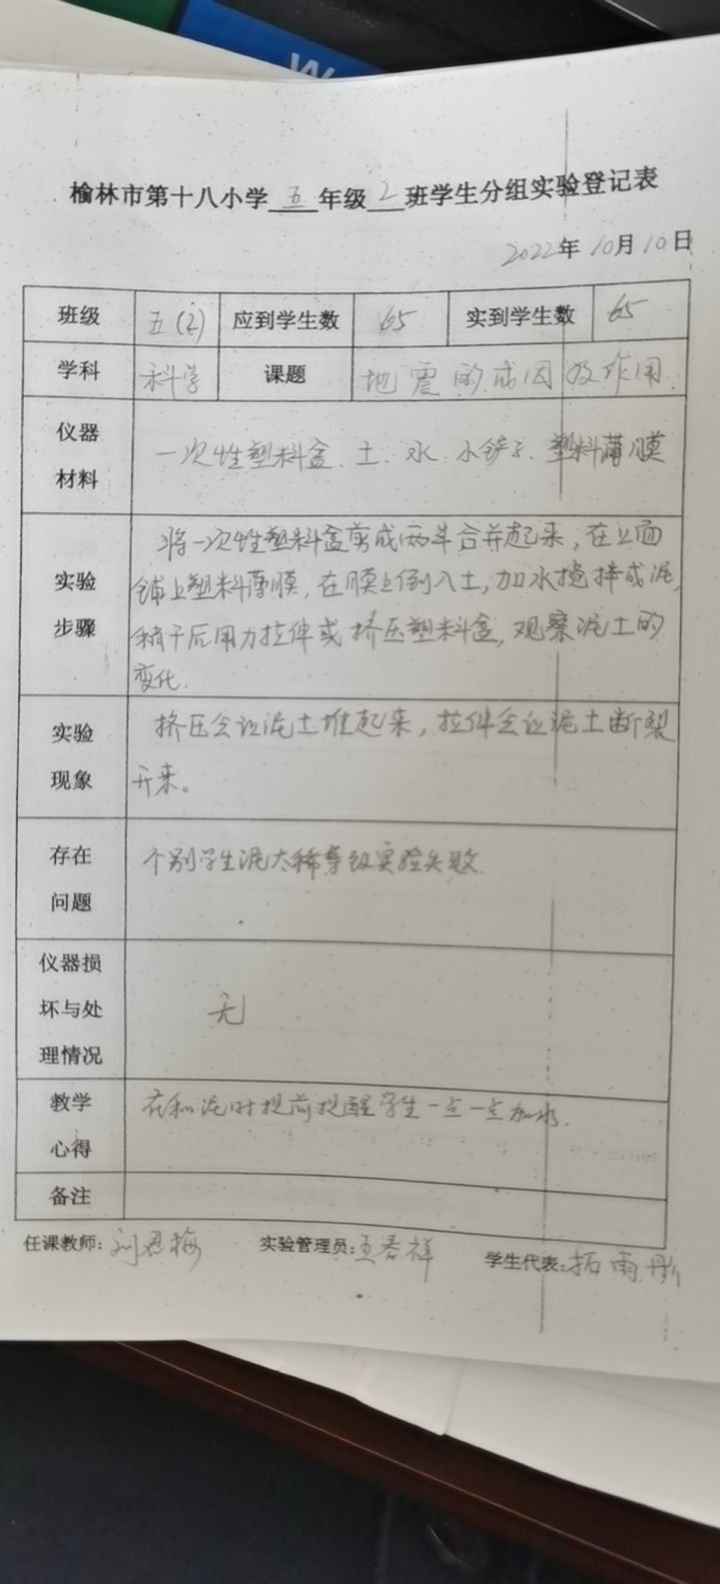 W
榆林市第十八小学 五 年级 2 班学生分组实验登记表
2022年 10月 10日
班级 五(2) 应到学生数 65 实到学生数 65
学科 科学 课题 地震的成因及作用
仪器
材料
一次性塑料盒、土、水、小铲子、塑料薄膜
实验
步骤
将一次性塑料盒剪成两半合并起来,在上面
铺上塑料薄膜,在膜上倒入土,加水搅拌成泥,
稍干后用力拉伸或挤压塑料盒,观察泥土的
变化.
实验
现象
挤压会让泥土堆起来,拉伸会让泥土断裂
开来。
存在
问题
个别学生泥太稀导致实验失败.
仪器损
坏与处
理情况
无
教学
心得
在和泥时提前提醒学生一点一点加水.
备注
任课教师: 刘 梅 实验管理员: 王春祥 学生代表: 拓雨彤